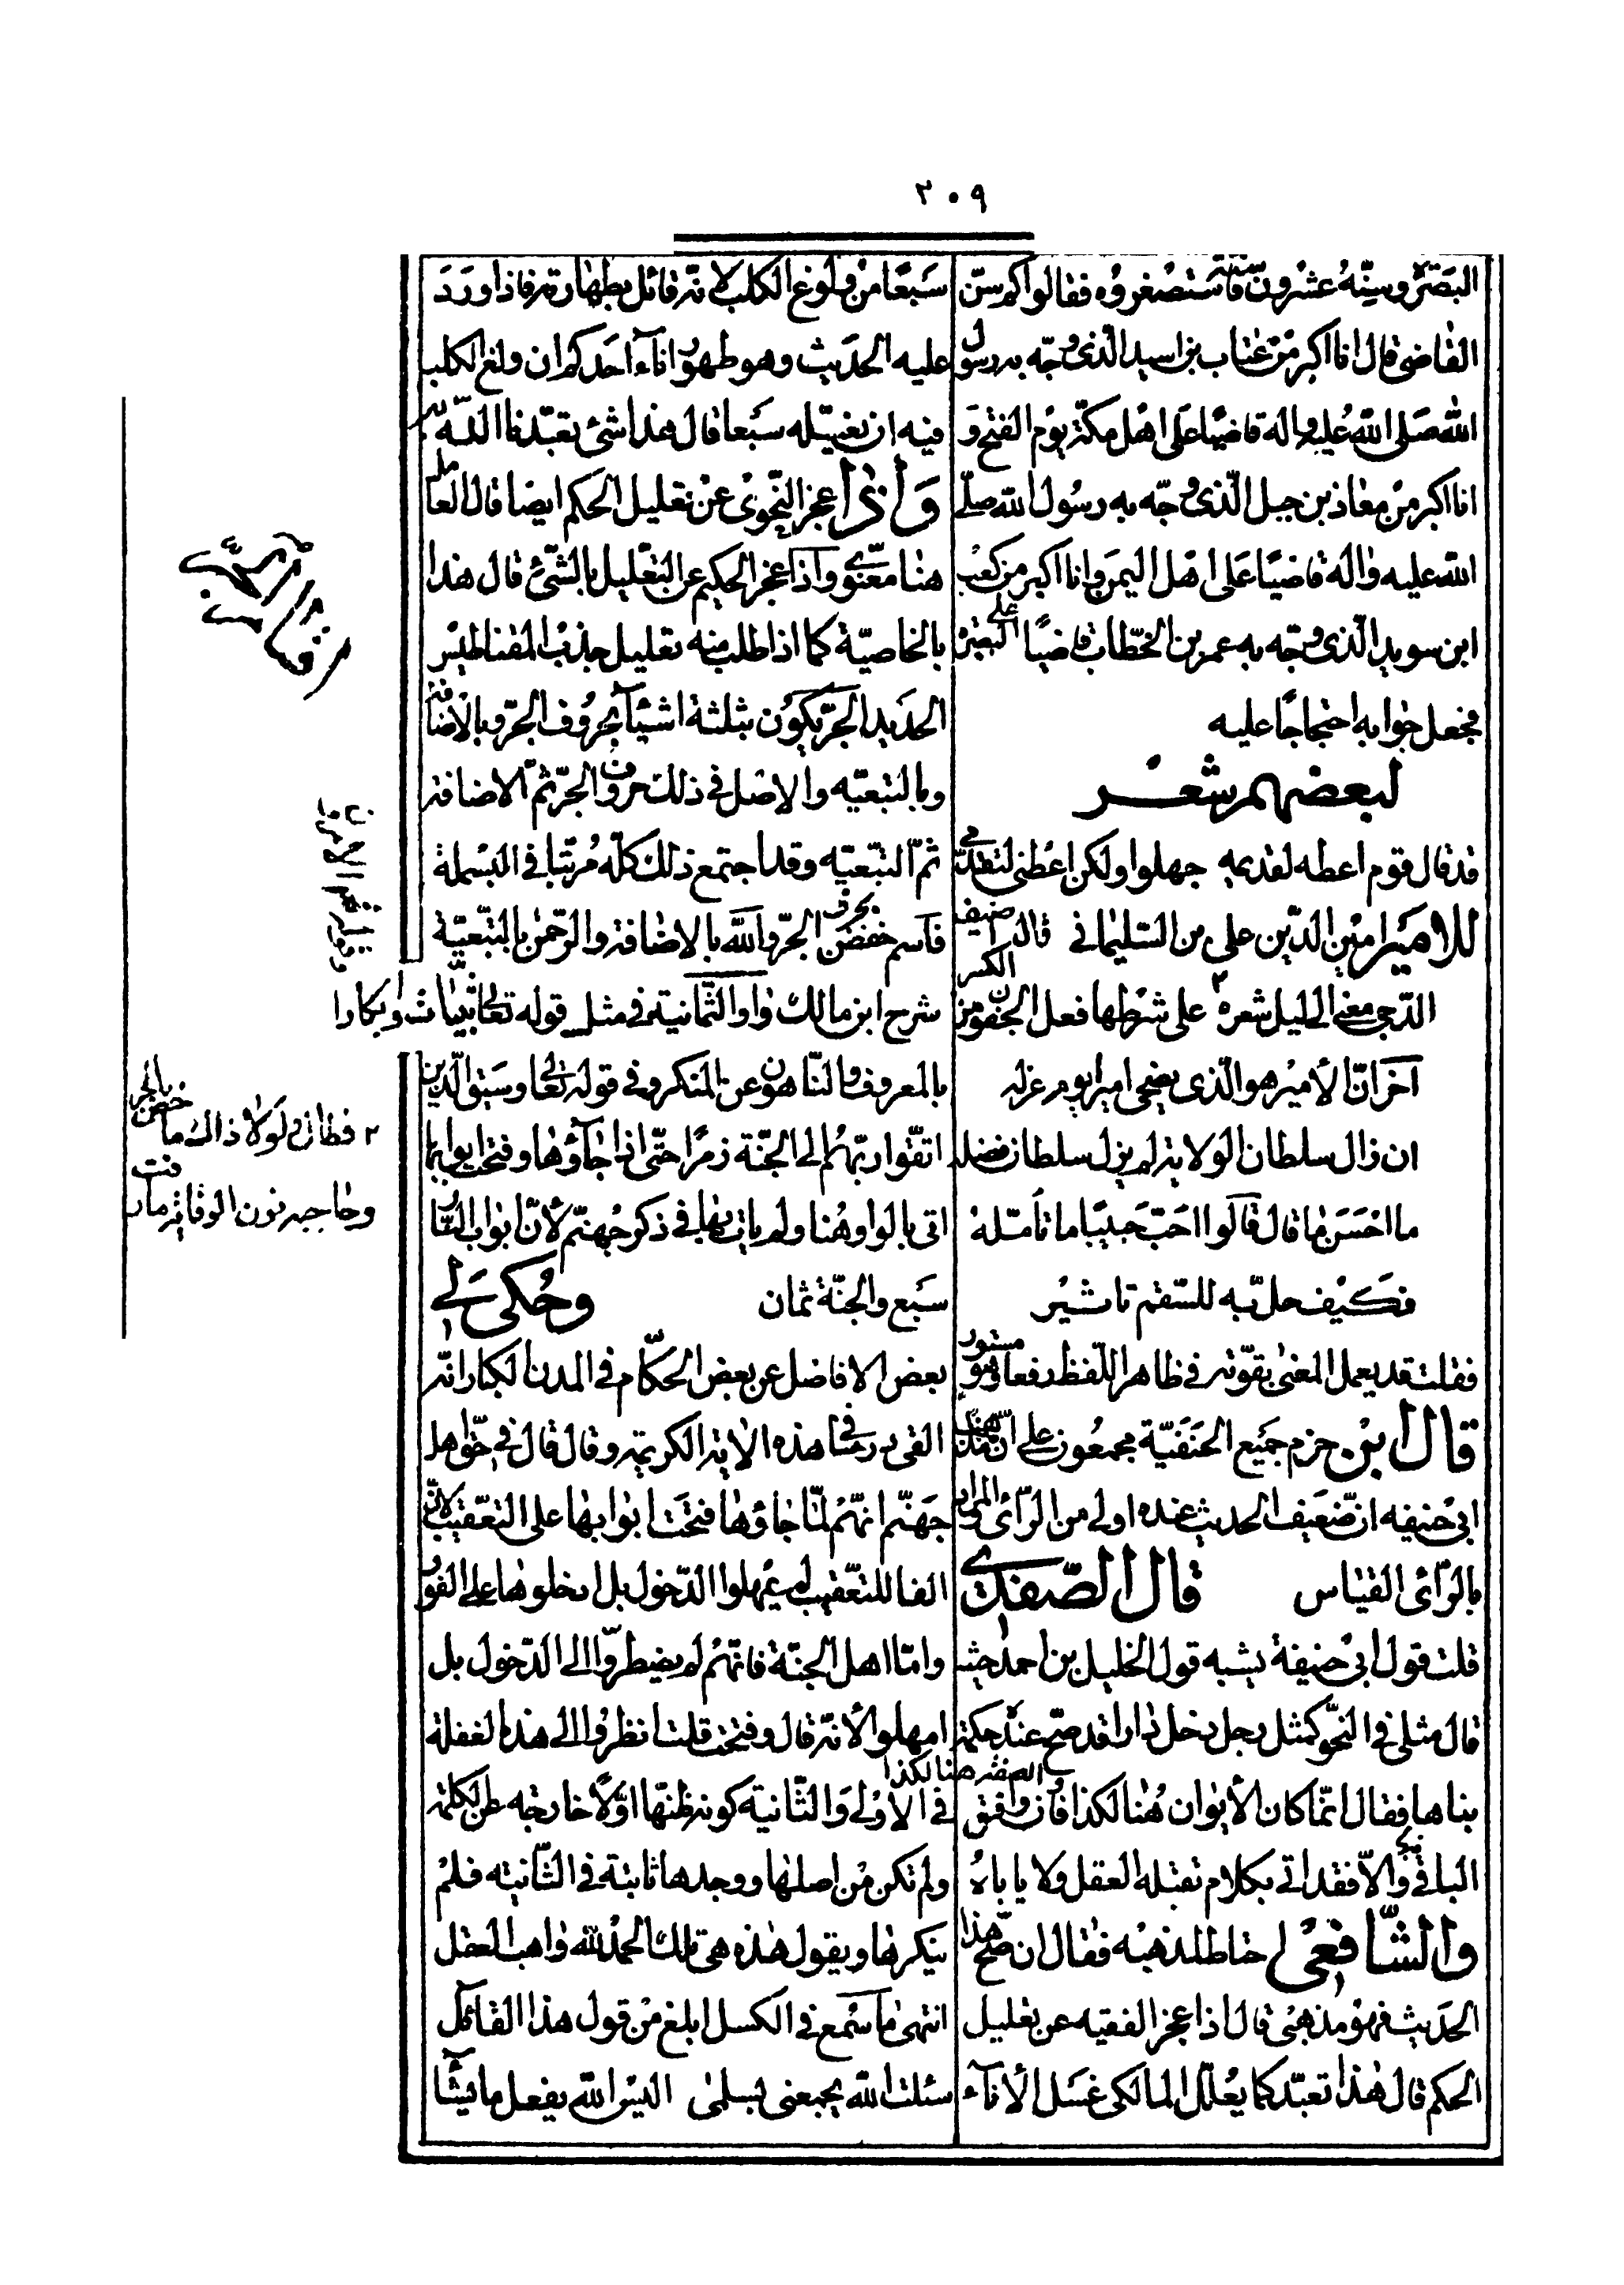 ٢٠٩
البصرة وسنّه عشرون سنة فاستصغروه فقالوا كم سنّ
القاضى قال انا اكبر من عتاب بن اسيد الّذى وجّه به رسول
الله صلى الله عليه واله قاضيا على اهل مكة يوم الفتح و
انا اكبر من معاذ بن جبل الّذى وجّه به رسول الله صلّى
الله عليه واله قاضيًا على اهل اليمن وانا اكبر من كعب
ابن سويد الّذى وجّه به عمر بن الخطّاب قاضيًا على البصرة
فجعل جوابه احتجاجًا عليه
لبعضهم شعر
قد قال قوم اعطه لقديمه جهلوا ولكن اعطنى لتقدّمى
للامير امين الدّين على بن السليمانى فى
الدّجى معنى الى ليل شعره على شرطها فعل الجفون من الكسر
آخر انّ الأمير هو الّذى يضحى اميرا يوم عزله
ان زال سلطان الولاية لم يزل سلطان فضله
ما احسن ما قال قالوا احبّ حبيبًا ما تأمّله
فكيف حلّ به للسّقم تاثير
فقلت قد يعمل المعنى بقوّته فى ظاهر اللّفظ رفعا وهو مستور
قال ابن حزم جميع الحنفيّة مجمعون على انّ مذهب
ابى حنيفه انّ ضعيف الحديث عنده اولى من الرّأى والمراد
بالرّأى القياس قال الصّفدى
قلت قول ابى حنيفة يشبه قول الخليل بن احمد حيث
قال مثلى فى النحو كمثل رجل دخل دارا قد صحّ عنده حكمة
بناها فقال انّما كان الأيوان هنا لكذا والصفّه هنا لكذا فان وافق
البانى والّا فقد اتى بكلام تقبله العقل ولا ياباهُ
والشّافعى احتاط لمذهبه فقال ان صحّ هذا
الحديث فهو مذهبى قال اذا عجز الفقيه عن تعليل
الحكم قال هذا تعبّد كما يعلّل المالكى غسل الأنآء
سبعًا من ولوغ الكلب لانّه قائل بطهارته فاذا ورد
عليه الحديث وهو طهور انآء احدكم ان ولغ الكلب
فيه ان يغسله سبعا قال هذا شئ تعبّدنا الله به
واذا عجز النّحوى عن تعليل الحكم ايضا قال العامل
هنا معنوى واذا عجز الحكيم عن التعليل بالشّئ قال هذا
بالخاصيّة كما اذا طلب منه تعليل جذب المغناطيس
الحديد الجرّ يكون بثلثة اشيآء بحروف الجرّ وبالاضافة
وبالتبعيّه والاصل فى ذلك حروف الجرّ ثمّ الاضافة
ثمّ التبعيّه وقد اجتمع ذلك كلّه مرتّبا فى البسملة
فاسم خفض بحرف الجرّ والله بالاضافة والرّحمن بالتبعيّة
شرح ابن مالك واو الثّمانية فى مثل قوله تعالى ثيّبات وابكارا
بالمعروف والنّاهون عن المنكر وفى قوله تعالى وسيق الّذين
اتّقوا ربّهم الى الجنّة زمرًا حتّى اذا جآؤها وفتحت ابوابها
اتى بالواو هنا ولم يات بها فى ذكر جهنّم لأنّ ابواب النّار
سبع والجنّة ثمان وحكى لى
بعض الافاضل عن بعض الحكّام فى المدن الكبار انّه
القى درسا فى هذه الاية الكريمة وقال قال فى حقّ اهل
جهنّم انّهم لمّا جاؤها فتحت ابوابها على التعقيب لانّ
الفا للتعقيب لم يمهلوا الدّخول بل ادخلوها على الفور
وامّا اهل الجنّة فانّهم لم يضطرّوا الى الدّخول بل
امهلوا لأنّه قال وفتحت قلت انظروا الى هذه الغفلة
فى الاولى والثّانية كونه ظنّها اوّلًا خارجه عن الكلمة
ولم تكن من اصلها ووجدها ثابتة فى الثّانية فلم
ينكرها ويقول هذه هى تلك الحمد لله واهب العقل
انتهى ما سُمع فى الكسل ابلغ من قول هذا القائل
سئلت الله يجمعنى بسلمى اليس الله يفعل ما يشآء
٢ فظانى لولا ذالك ما خفض بالجر
وحاجبه نون الوقاية ما